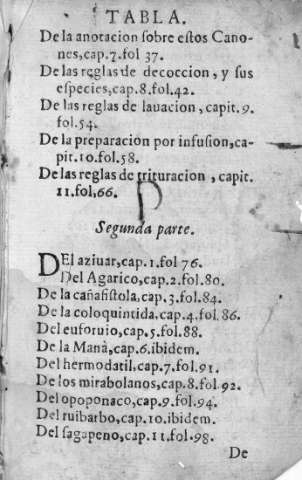 TABLA.
De la anotacion sobre estos Cano-
nes,cap.7.fol 37.
De las reglas de decoccion, y sus
especies,cap.8.fol.42.
De las reglas de lauacion, capit.9.
fol.54.
De la preparacion por infusion,ca-
pit.10.fol.58.
De las reglas de trituracion, capit.
11.fol,66.
Segunda parte.
DEl aziuar,cap.1.fol 76.
Del Agarico,cap.2.fol.80.
De la cañafistola,cap.3.fol.84.
De la coloquintida,cap.4.fol.86.
Del euforuio,cap.5.fol.88.
De la Manà,cap.6.ibidem.
Del hermodatil,cap.7.fol.91.
De los mirabolanos,cap.8.fol.92.
Del opoponaco,cap.9.fol.94.
Del ruibarbo,cap.10.ibidem.
Del sagapeno,cap.11.fol.98.
De